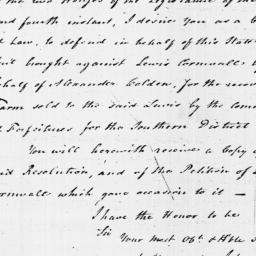 the two Houses of the Legislature of the
nd fourth instant, I desire you as a
t Law, to defend in behalf of this State
Suit brought against Lewis Cornwall
ehalf of Alexander Colden, for the recov
Farm sold to the said Lewis by the Com
f Forfeitures for the Southern District
You will herewith receive a Copy
aid Resolution, and of the Petition of
ornwall which gave occasion to it —
I have the Honor to be
Sir
Your most Obt. & Hble